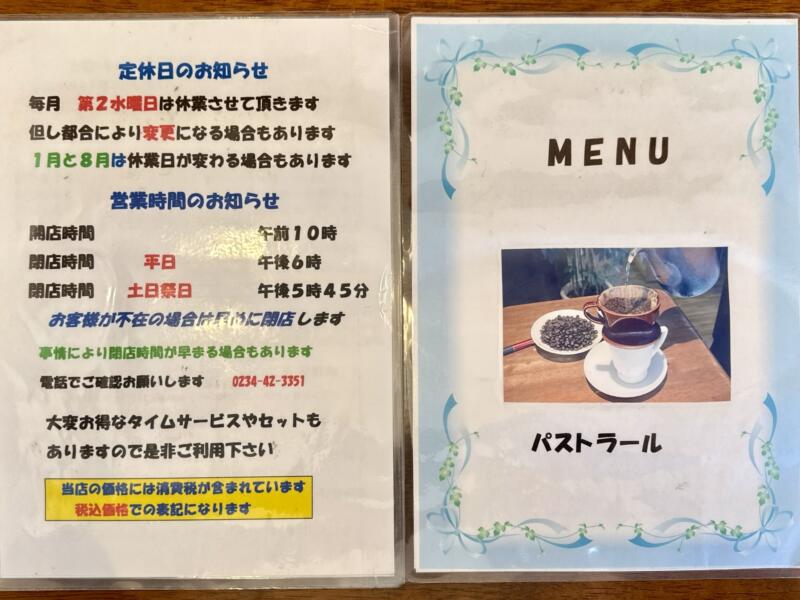 定休日のお知らせ
毎月 第2水曜日は休業させて頂きます
但し都合により変更になる場合もあります
1月と8月は休業日が変わる場合もあります
営業時間のお知らせ
開店時間 午前10時
閉店時間 平日 午後6時
閉店時間 土日祭日 午後5時45分
お客様が不在の場合は早めに閉店します
事情により閉店時間が早まる場合もあります
電話でご確認お願いします 0234-42-3351
大変お得なタイムサービスやセットも
ありますので是非ご利用下さい
当店の価格には消費税が含まれています
税込価格での表記になります
MENU
パストラール